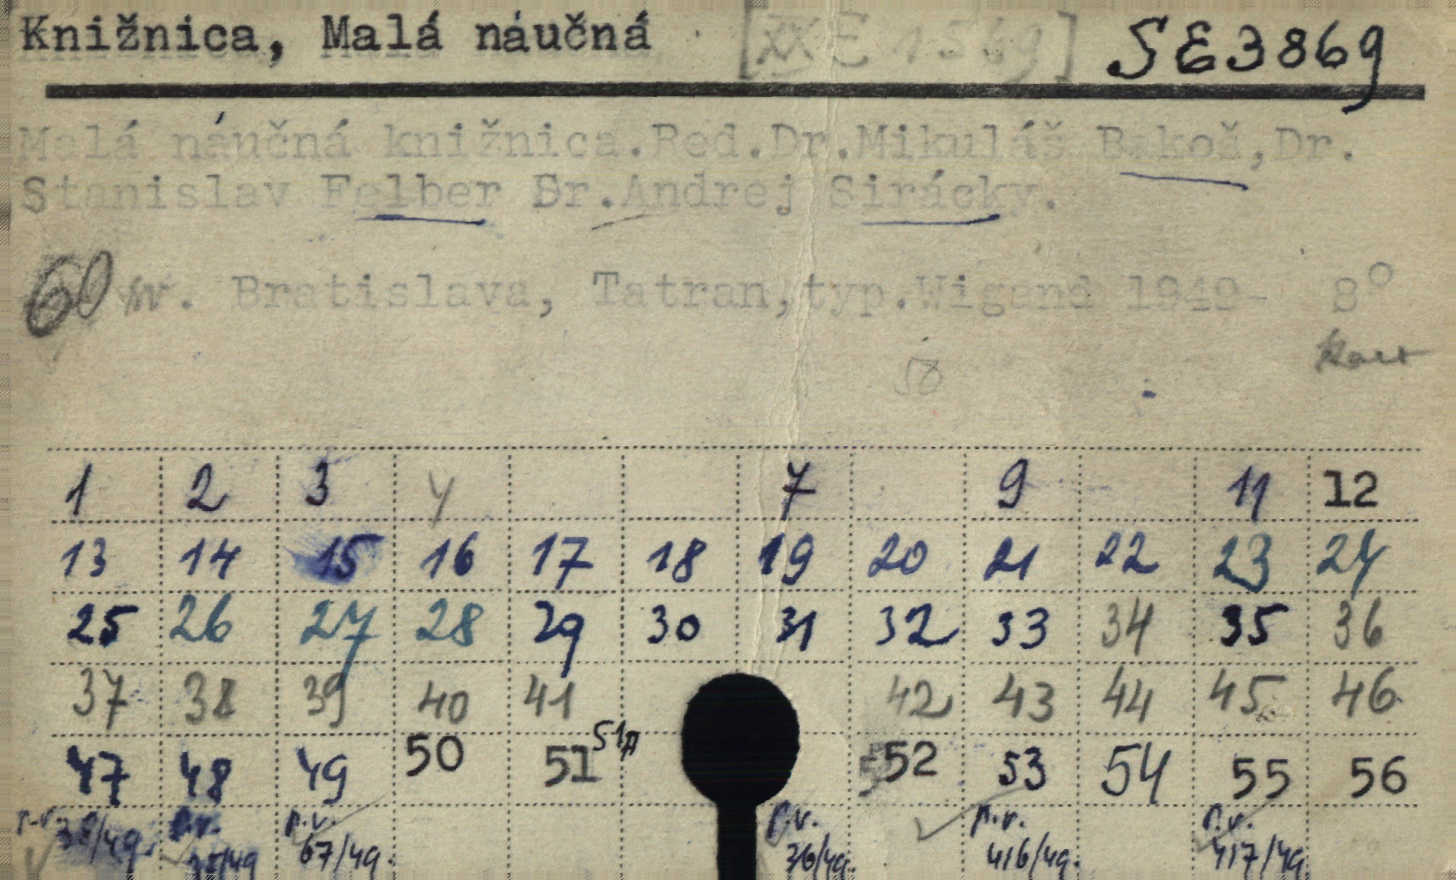 Knižnica, Malá náučná [XX E 1569] SE3869
Malá náučná knižnica.Red.Dr.Mikuláš Bakoš,Dr.
Stanislav Felber Dr.Andrej Sirácky.
60 sv. Bratislava, Tatran,typ.Wigand 1949- 8°
kart
58
1 2 3 4 7 9 11 12
13 14 15 16 17 18 19 20 21 22 23 24
25 26 27 28 29 30 31 32 33 34 35 36
37 38 39 40 41 42 43 44 45 46
47 48 49 50 51 51A 52 53 54 55 56
p.v. p.v. p.v. p.v. p.v. p.v.
38/49. 35/49 67/49. 36/49. 416/49. 417/49